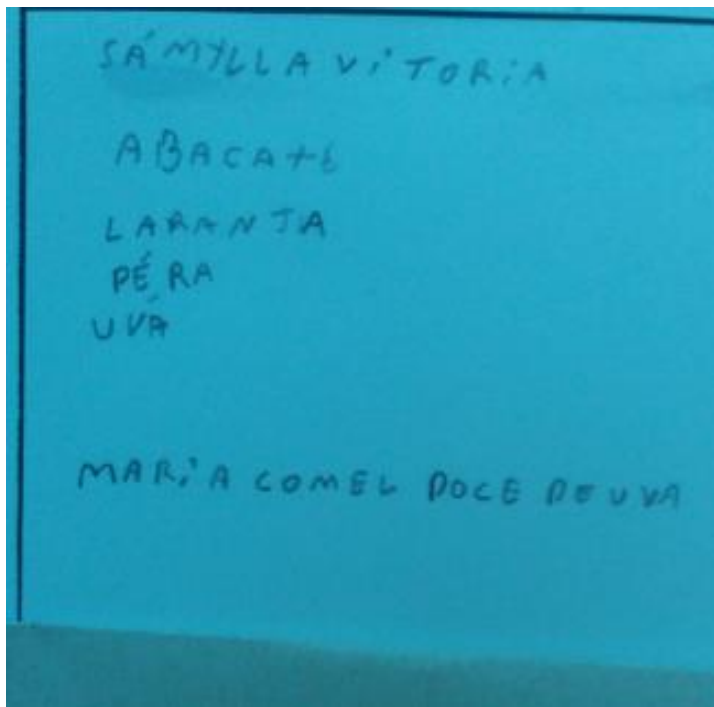 SÁMYLLA ViTORiA
ABACAtE
LARANJA
PÉRA
UVÁ
MARiA COMEL DOCE DE UVA